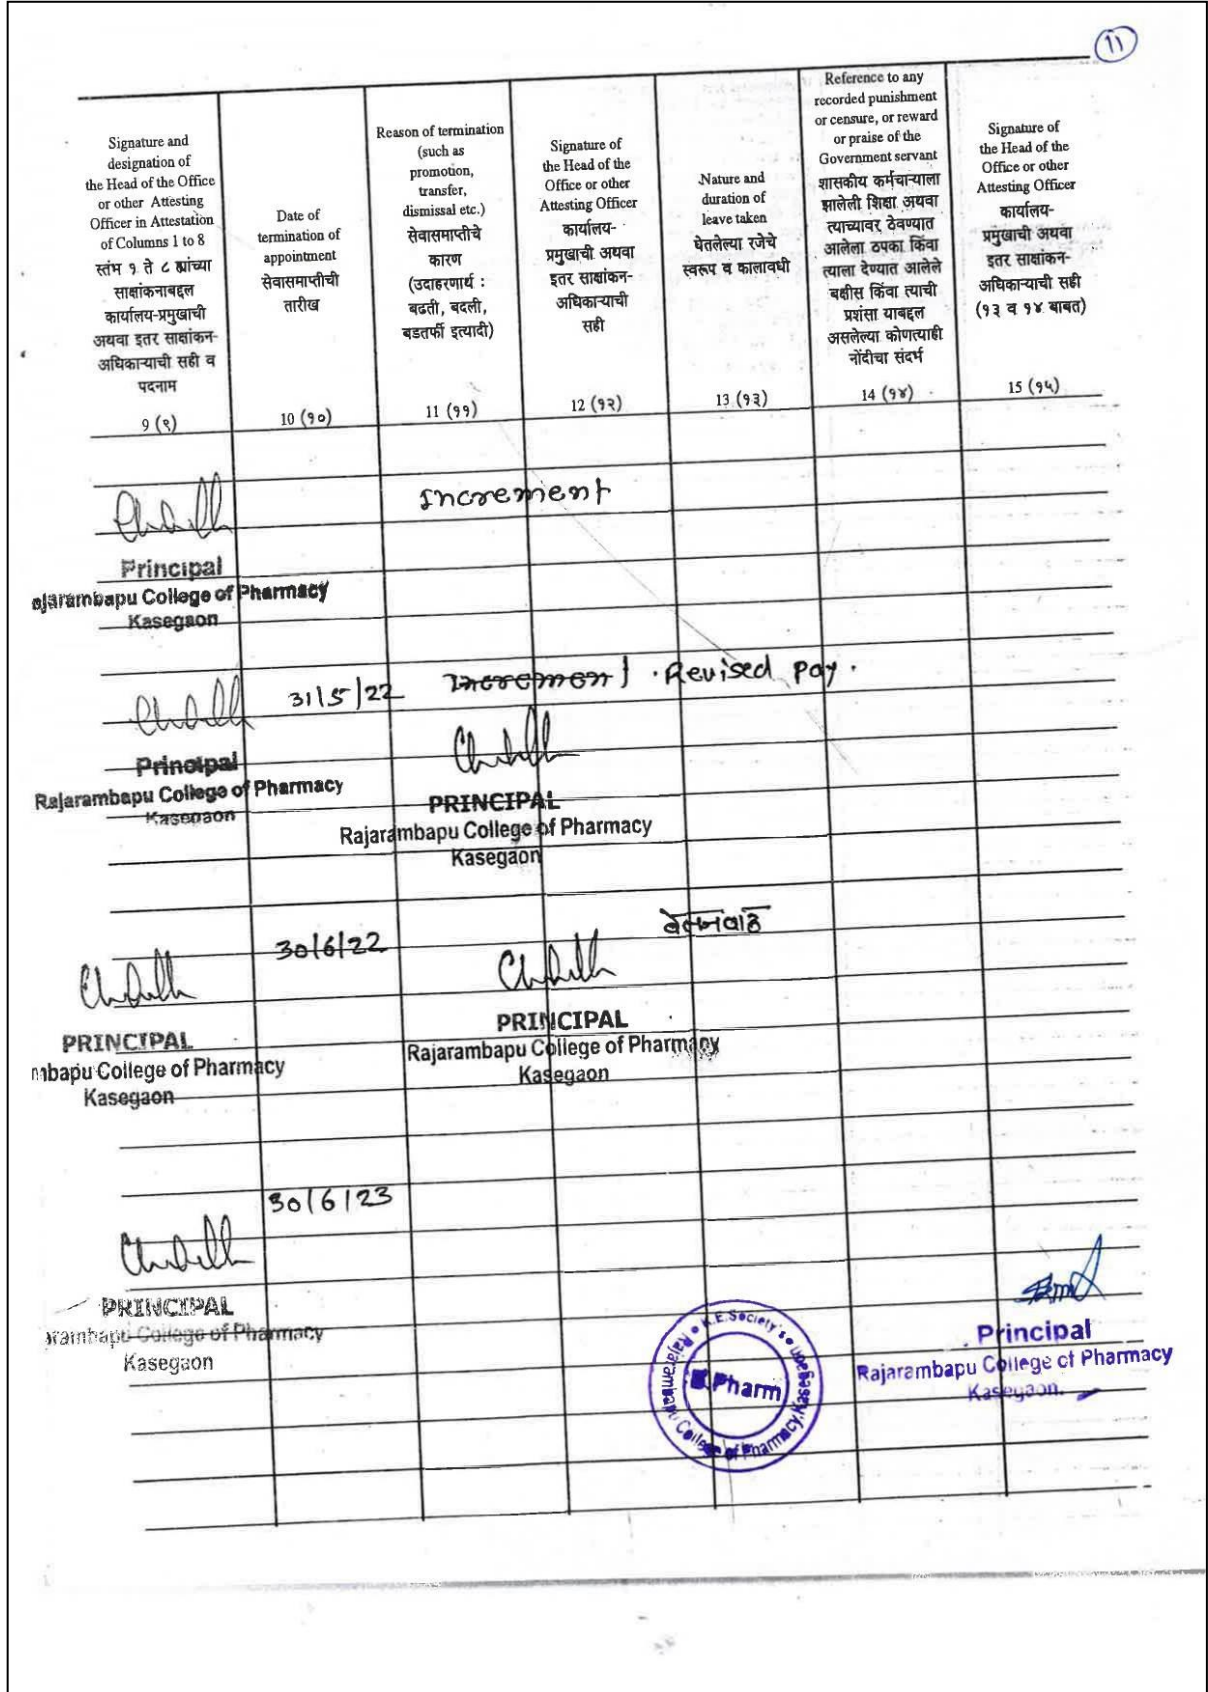 11
Signature and
designation of
the Head of the Office
or other Attesting
Officer in Attestation
of Columns 1 to 8
स्तंभ १ ते ८ ह्यांच्या
साक्षांकनाबद्दल
कार्यालय-प्रमुखाची
अथवा इतर साक्षांकन-
अधिकाऱ्याची सही व
पदनाम
9 (९)
Date of
termination of
appointment
सेवासमाप्तीची
तारीख
10 (१०)
Reason of termination
(such as
promotion,
transfer,
dismissal etc.)
सेवासमाप्तीचे
कारण
(उदाहरणार्थ :
बढती, बदली,
बडतर्फी इत्यादी)
11 (११)
Signature of
the Head of the
Office or other
Attesting Officer
कार्यालय-
प्रमुखाची अथवा
इतर साक्षांकन-
अधिकाऱ्याची
सही
12 (१२)
Nature and
duration of
leave taken
घेतलेल्या रजेचे
स्वरूप व कालावधी
13 (१३)
Reference to any
recorded punishment
or censure, or reward
or praise of the
Government servant
शासकीय कर्मचाऱ्याला
झालेली शिक्षा अथवा
त्याच्यावर ठेवण्यात
आलेला ठपका किंवा
त्याला देण्यात आलेले
बक्षीस किंवा त्याची
प्रशंसा याबद्दल
असलेल्या कोणत्याही
नोंदीचा संदर्भ
14 (१४)
Signature of
the Head of the
Office or other
Attesting Officer
कार्यालय-
प्रमुखाची अथवा
इतर साक्षांकन-
अधिकाऱ्याची सही
(१३ व १४ बाबत)
15 (१५)
Increment
Principal
ajarambapu College of Pharmacy
Kasegaon
31/5/22 Increment . Revised Pay .
Principal
Rajarambapu College of Pharmacy
Kasegaon
PRINCIPAL
Rajarambapu College of Pharmacy
Kasegaon
30/6/22
PRINCIPAL
mbapu College of Pharmacy
Kasegaon
PRINCIPAL
Rajarambapu College of Pharmacy
Kasegaon
30/6/23
PRINCIPAL
arambapu College of Pharmacy
Kasegaon
K.E.Society's
Rajarambapu College of Pharmacy, Kasegaon
Pharm
Principal
Rajarambapu College of Pharmacy
Kasegaon.